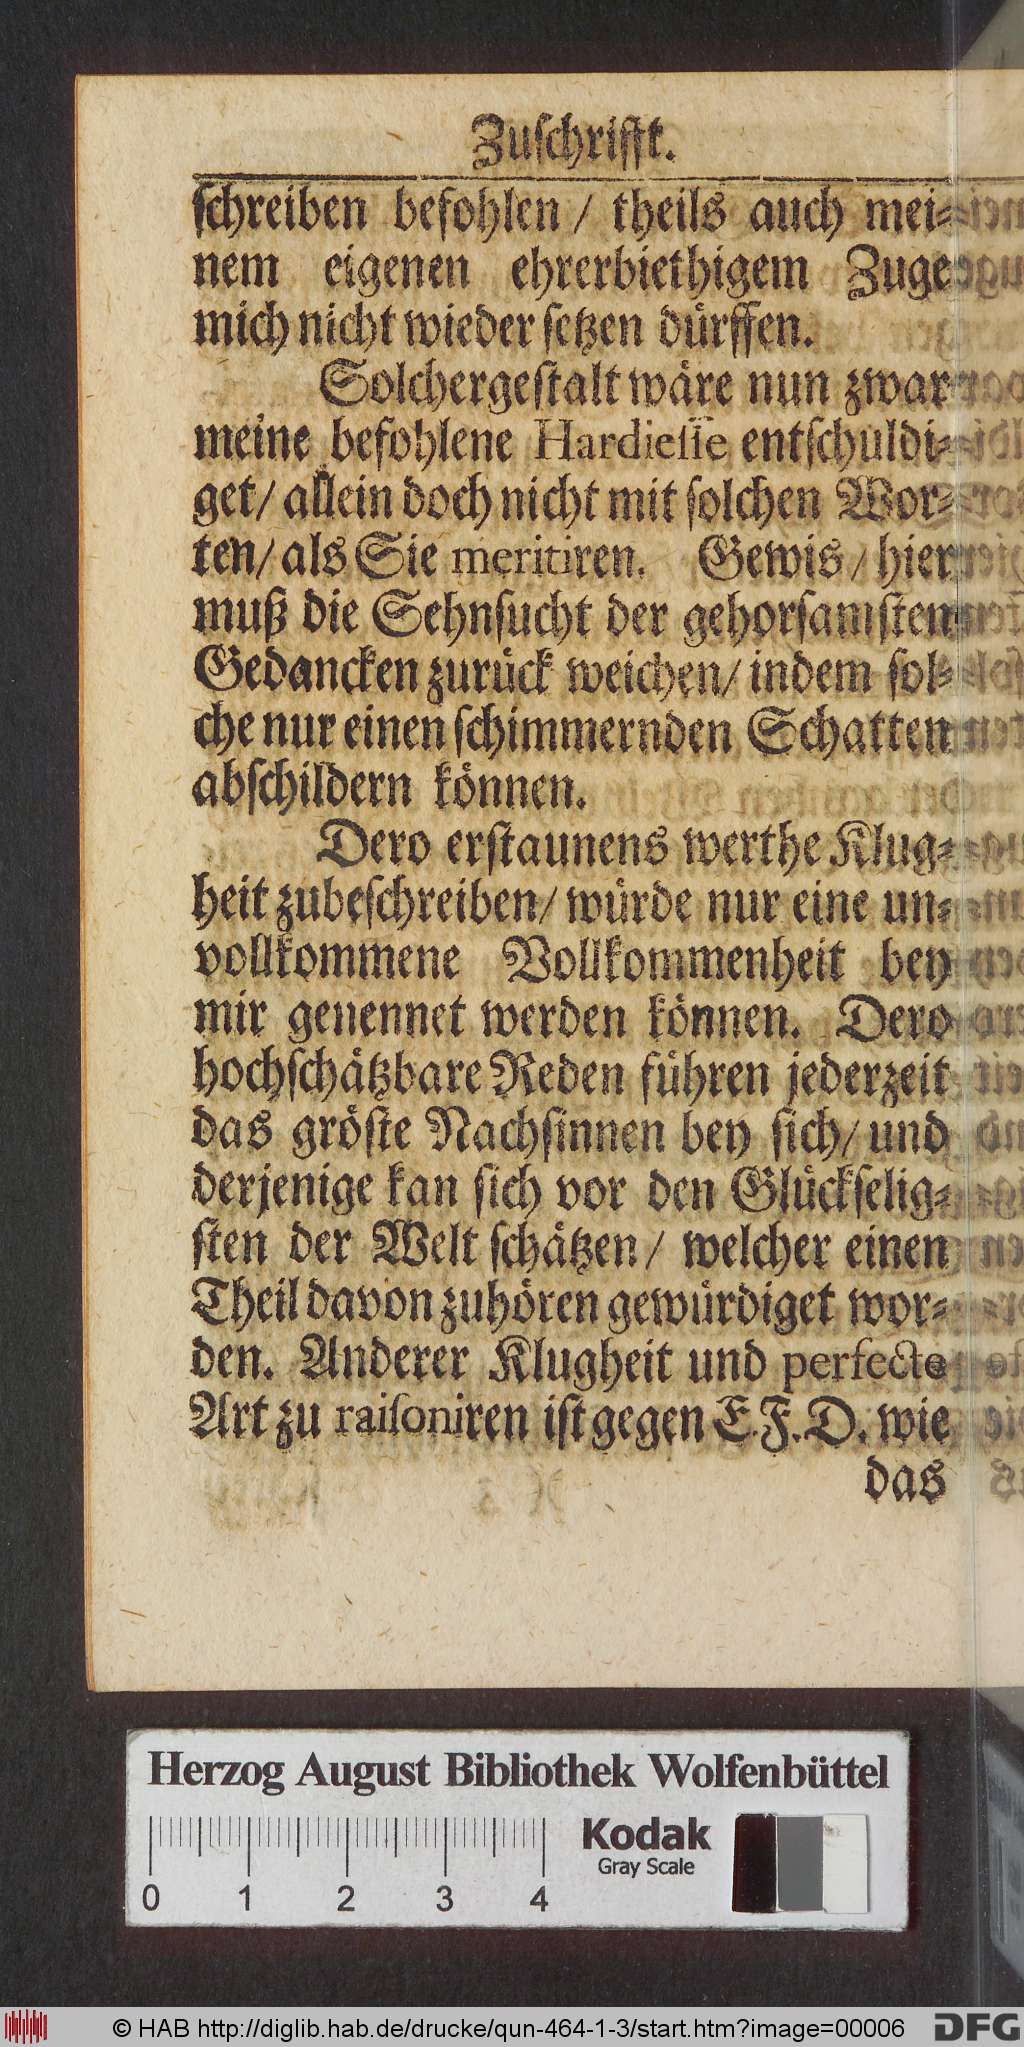 Zuſchrifft.
ſchreiben befohlen / theils auch mei-
nem eigenen ehrerbiethigem Zuge
mich nicht wieder ſetzen dürffen.
Solchergeſtalt wäre nun zwar
meine befohlene Hardieſſe entſchuldi-
get/ allein doch nicht mit ſolchen Wor-
ten/ als Sie meritiren. Gewis / hier
muß die Sehnſucht der gehorſamſten
Gedancken zurück weichen/ indem ſol-
che nur einen ſchimmernden Schatten
abſchildern können.
Dero erſtaunens werthe Klug-
heit zubeſchreiben/ würde nur eine un-
vollkommene Vollkommenheit bey
mir genennet werden können. Dero
hochſchätzbare Reden führen jederzeit
das gröſte Nachſinnen bey ſich/ und
derjenige kan ſich vor den Glückſelig-
ſten der Welt ſchätzen/ welcher einen
Theil davon zuhören gewürdiget wor-
den. Anderer Klugheit und perfecte
Art zu raiſoniren iſt gegen E. F. D. wie
das
Herzog August Bibliothek Wolfenbüttel
Kodak
Gray Scale
0 1 2 3 4
© HAB http://diglib.hab.de/drucke/qun-464-1-3/start.htm?image=00006
DFG